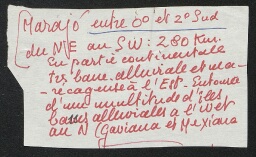 Marajó entre 0° et 2° Sud
du NE au SW : 280 Km.
En partie continentale
très basse alluviale et ma-
récageuse à l'Est - Entourée
d'une multitude d'îles
basses alluviales à l'West
au N (Caviana et Mexiana